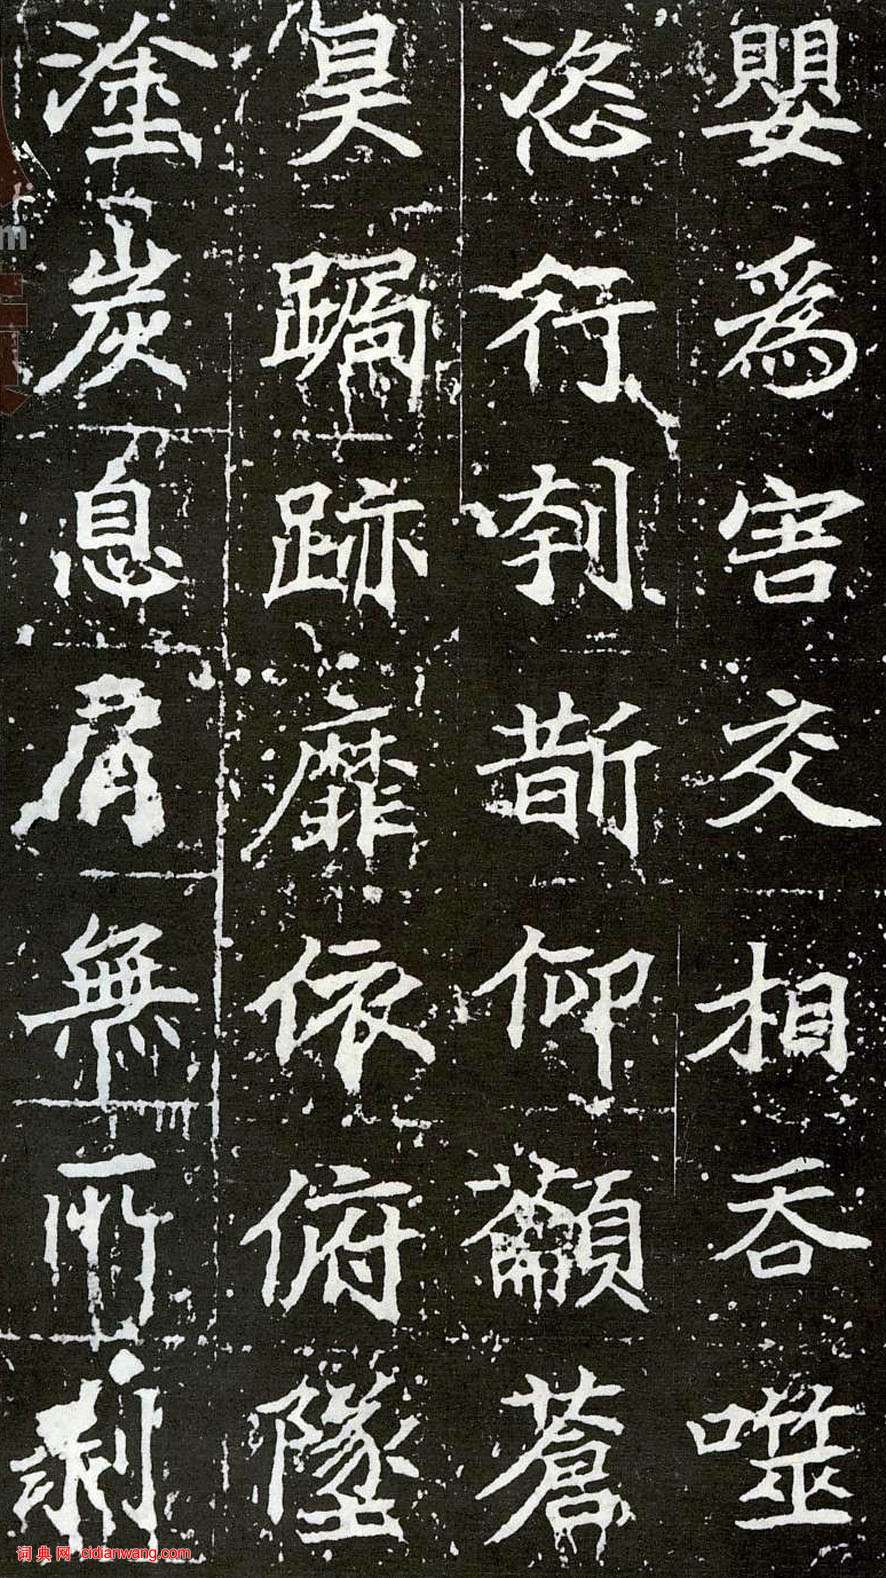 嬰為害交相吞噬
恣行刳斮仰顲蒼
昊跼跡靡依俯墜
塗炭息肩無所剩
词典网 cidianwang.com